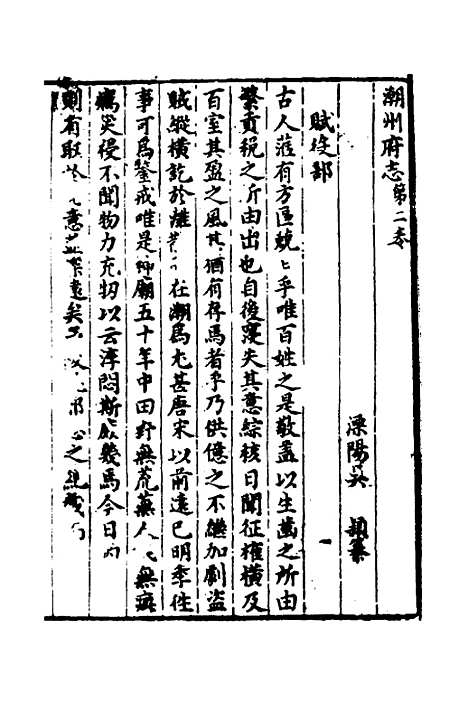 潮州府志第二卷
溧陽吳 頴纂
賦役部
古人蒞有方區兢〻乎唯百姓之是敬蓋以生齒之所由
繁貢稅之所由出也自後寖失其意綜核日聞征榷橫及
百室其盈之風其猶有存焉者乎乃供億之不繼加劇盜
賊縱橫訖於離 在潮爲尤甚唐宋以前遠已明季往
事可爲鑒戒唯是 廟五十年中田野無荒蕪人 無
災祲不聞物力充牣以云淳悶斯庶幾焉今日
則有 意 遠矣 之